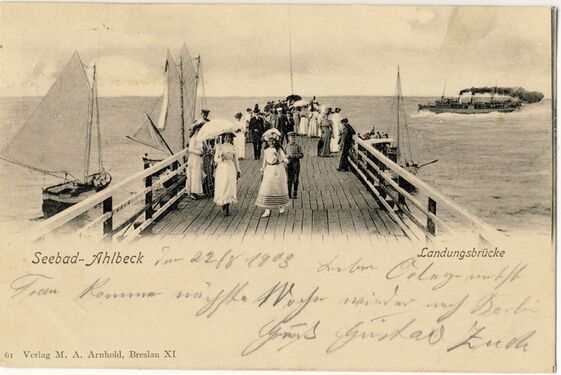 Seebad-Ahlbeck
Landungsbrücke
den 22/8 1903
Lieber
Frau Komme nächste Woche wieder nach Berlin
Gruß Gustav
61 Verlag M. A. Arnhold, Breslau XI